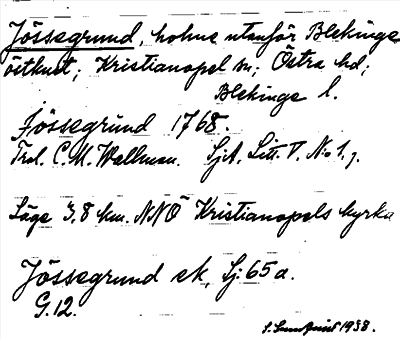 Jössegrund, holme utanför Blekinge
östkust; Kristianopel sn; Östra hd;
Blekinge l.
Jössegrund 1768.
C.M. Wallman. SjA. Litt. V. No 1,
Läge 3,8 km. NNÖ Kristianopels kyrka
Jössegrund ek, Sj. 65 a.
G. 12.
1938.